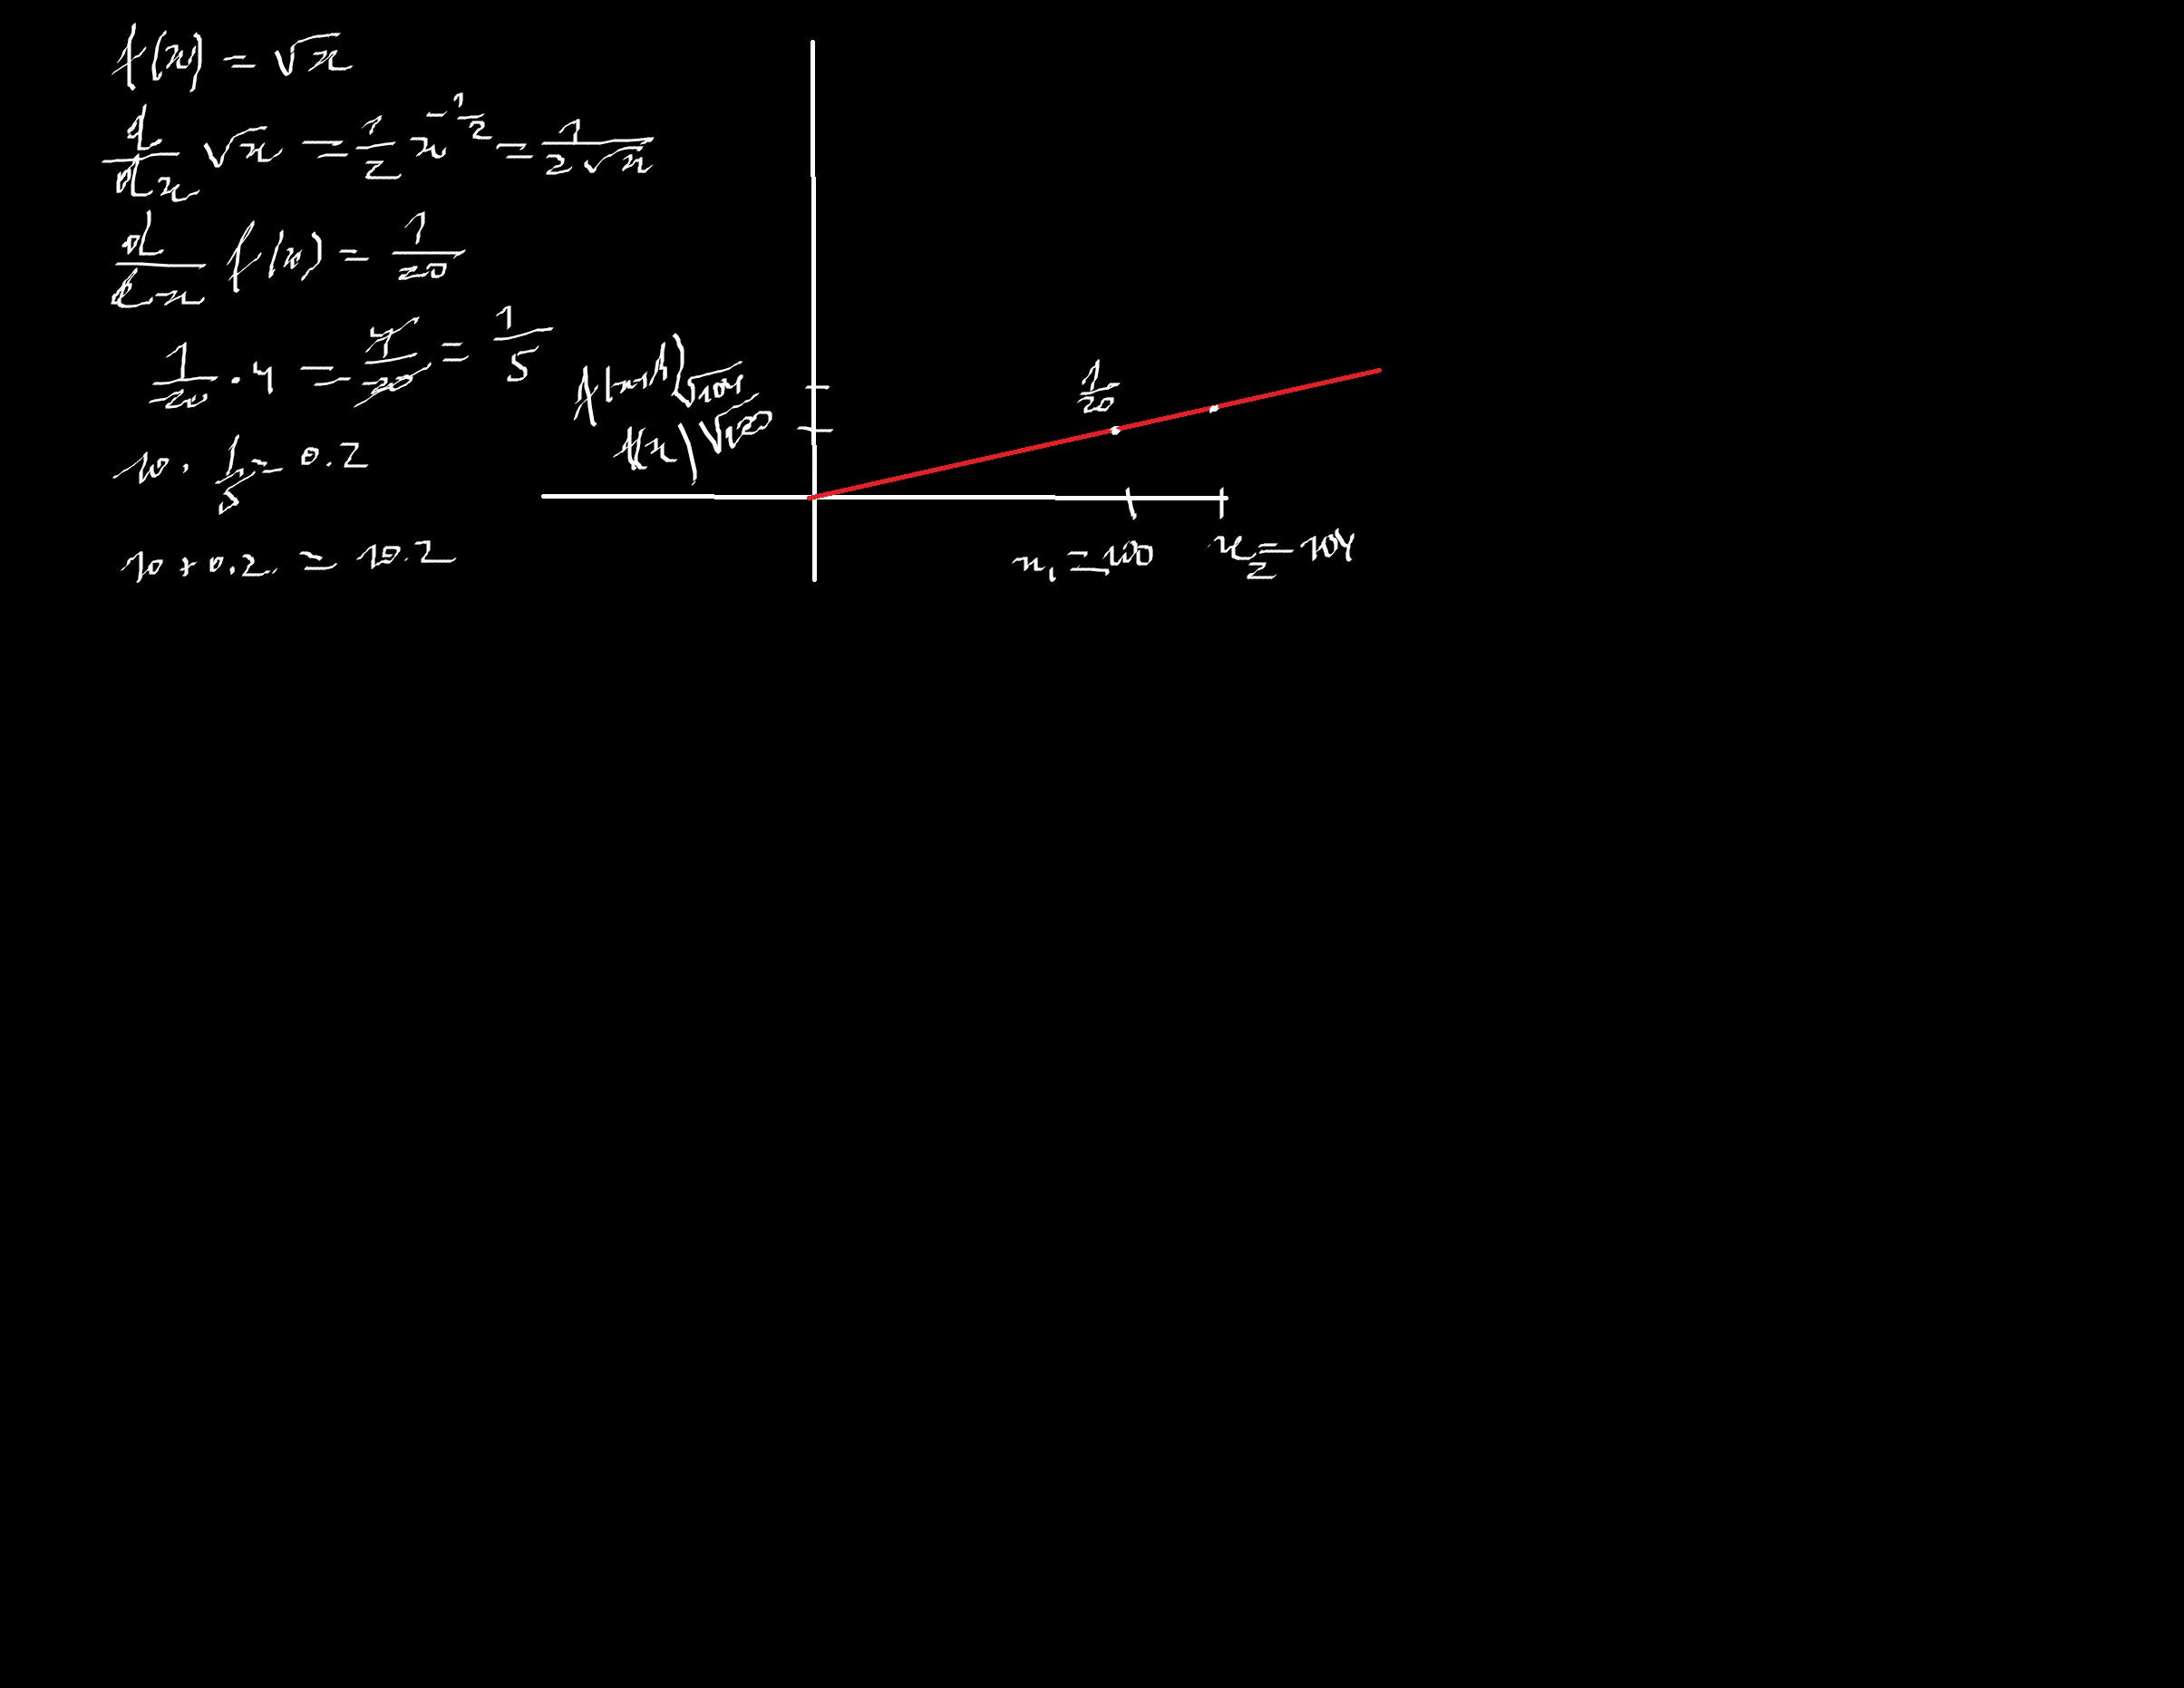 f(x) = √x
d/dx √x = 1/2 x^-1/2 = 1/2√x
d/dx f(x) = 1/20
1/20 · 4 = 4/20 = 1/5
10 · 1/5 = 0.2
10 + 0.2 = 10.2
√104
f(x) √100
1/20
x₁ = 100
x₂ = 104